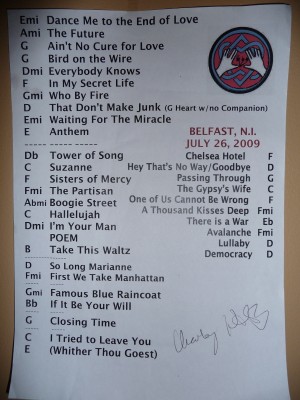 Emi Dance Me to the End of Love
Ami The Future
G Ain't No Cure for Love
G Bird on the Wire
Dmi Everybody Knows
F In My Secret Life
Gmi Who By Fire
D That Don't Make Junk (G Heart w/no Companion)
Emi Waiting For The Miracle
E Anthem
BELFAST, N.I.
JULY 26, 2009
----- ----- -----
Db Tower of Song
C Suzanne
F Sisters of Mercy
Fmi The Partisan
Abmi Boogie Street
C Hallelujah
Dmi I'm Your Man
POEM
B Take This Waltz
Chelsea Hotel F
Hey That's No Way/Goodbye D
Passing Through G
The Gypsy's Wife C
One of Us Cannot Be Wrong F
A Thousand Kisses Deep Fmi
There is a War Eb
Avalanche Fmi
Lullaby D
Democracy D
D So Long Marianne
Fmi First We Take Manhattan
Gmi Famous Blue Raincoat
Bb If It Be Your Will
G Closing Time
C I Tried to Leave You
E (Whither Thou Goest)